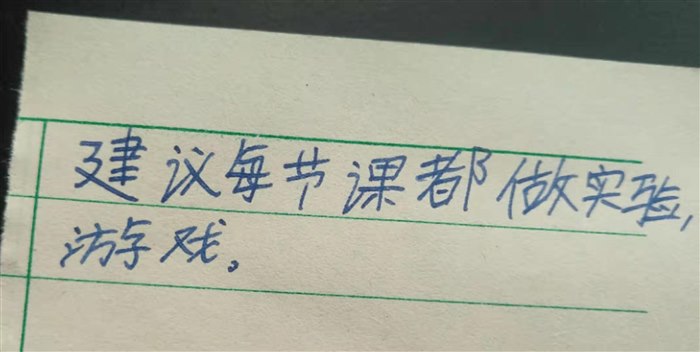 建议每节课都做实验,
游戏。